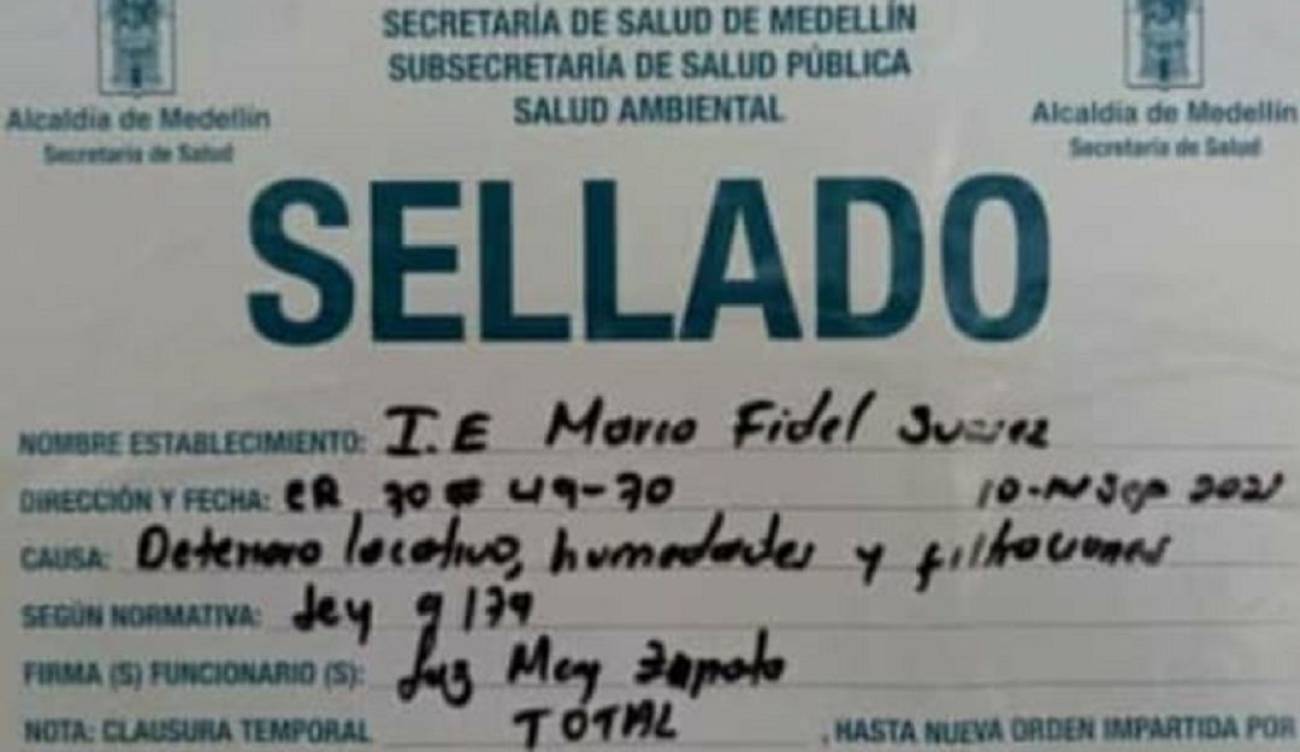 SECRETARÍA DE SALUD DE MEDELLÍN
SUBSECRETARÍA DE SALUD PÚBLICA
SALUD AMBIENTAL
Alcaldía de Medellín
Secretaría de Salud
Alcaldía de Medellín
Secretaría de Salud
SELLADO
NOMBRE ESTABLECIMIENTO: I.E Marco Fidel Suarez
DIRECCIÓN Y FECHA: CR 70 # 49-70 Sep 2021
CAUSA: Deterioro locativo, humedades y filtraciones
SEGÚN NORMATIVA: Ley 9/79
FIRMA (S) FUNCIONARIO (S): Luz Mey Zapata
NOTA: CLAUSURA TEMPORAL TOTAL , HASTA NUEVA ORDEN IMPARTIDA POR